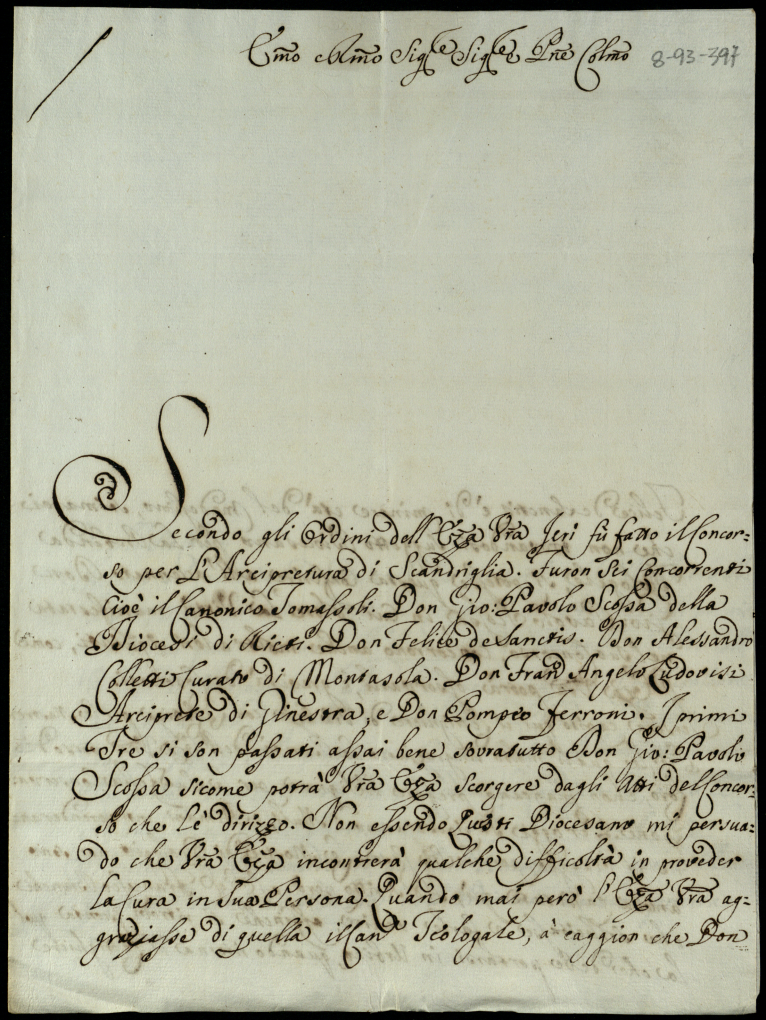 Emo e Rmo Sig.re Sig.re Pne Colmo 8-93-397
Secondo gli Ordini dell' Eza Vra Jeri fù fatto il Concor=
so per L'Arcipretura di Scandriglia. Furon sei Concorrenti
Cioè il Canonico Tomassoli. Don Gio: Pavolo Scossa della
Diocesi di Rieti. Don Felice de Sanctis. Don Alessandro
Colletti Curato di Montasola. Don Fran Angelo Ludovisi
Arciprete di Ginestra, e Don Pompeo Ferroni. I primi
Tre si son passati assai bene sovratutto Don Gio: Pavolo
Scossa sicome potrà Vra Eza scorgere dagli Atti del Concor=
so che Le dirizzo. Non essendo Questi Diocesano mi persua=
do che Vra Eza incontrerà qualche difficoltà in proveder
la Cura in Sua Persona. Quando mai però l'Eza Vra ag=
graziasse di quella il Can Teologale, à caggion che Don